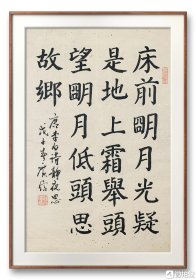 床前眀月光疑
是地上霜舉頭
望眀月低頭思
故鄉
唐李白詩靜夜思
戊子